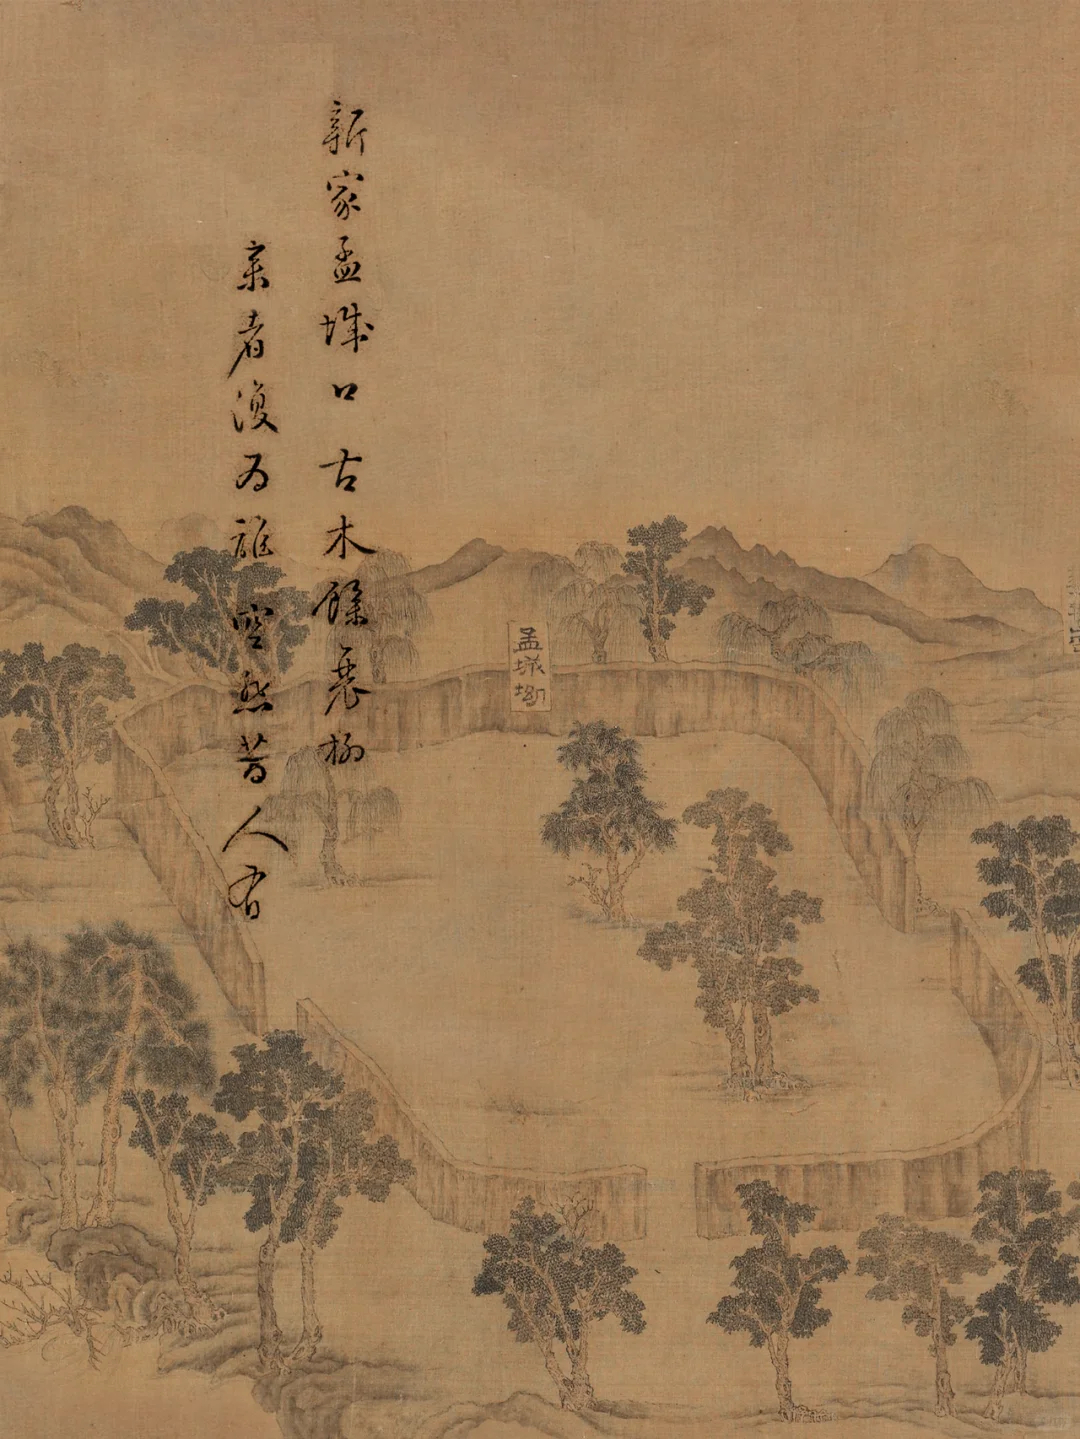 新家孟城口古木餘衰柳
来者復为誰空悲昔人有
孟城坳